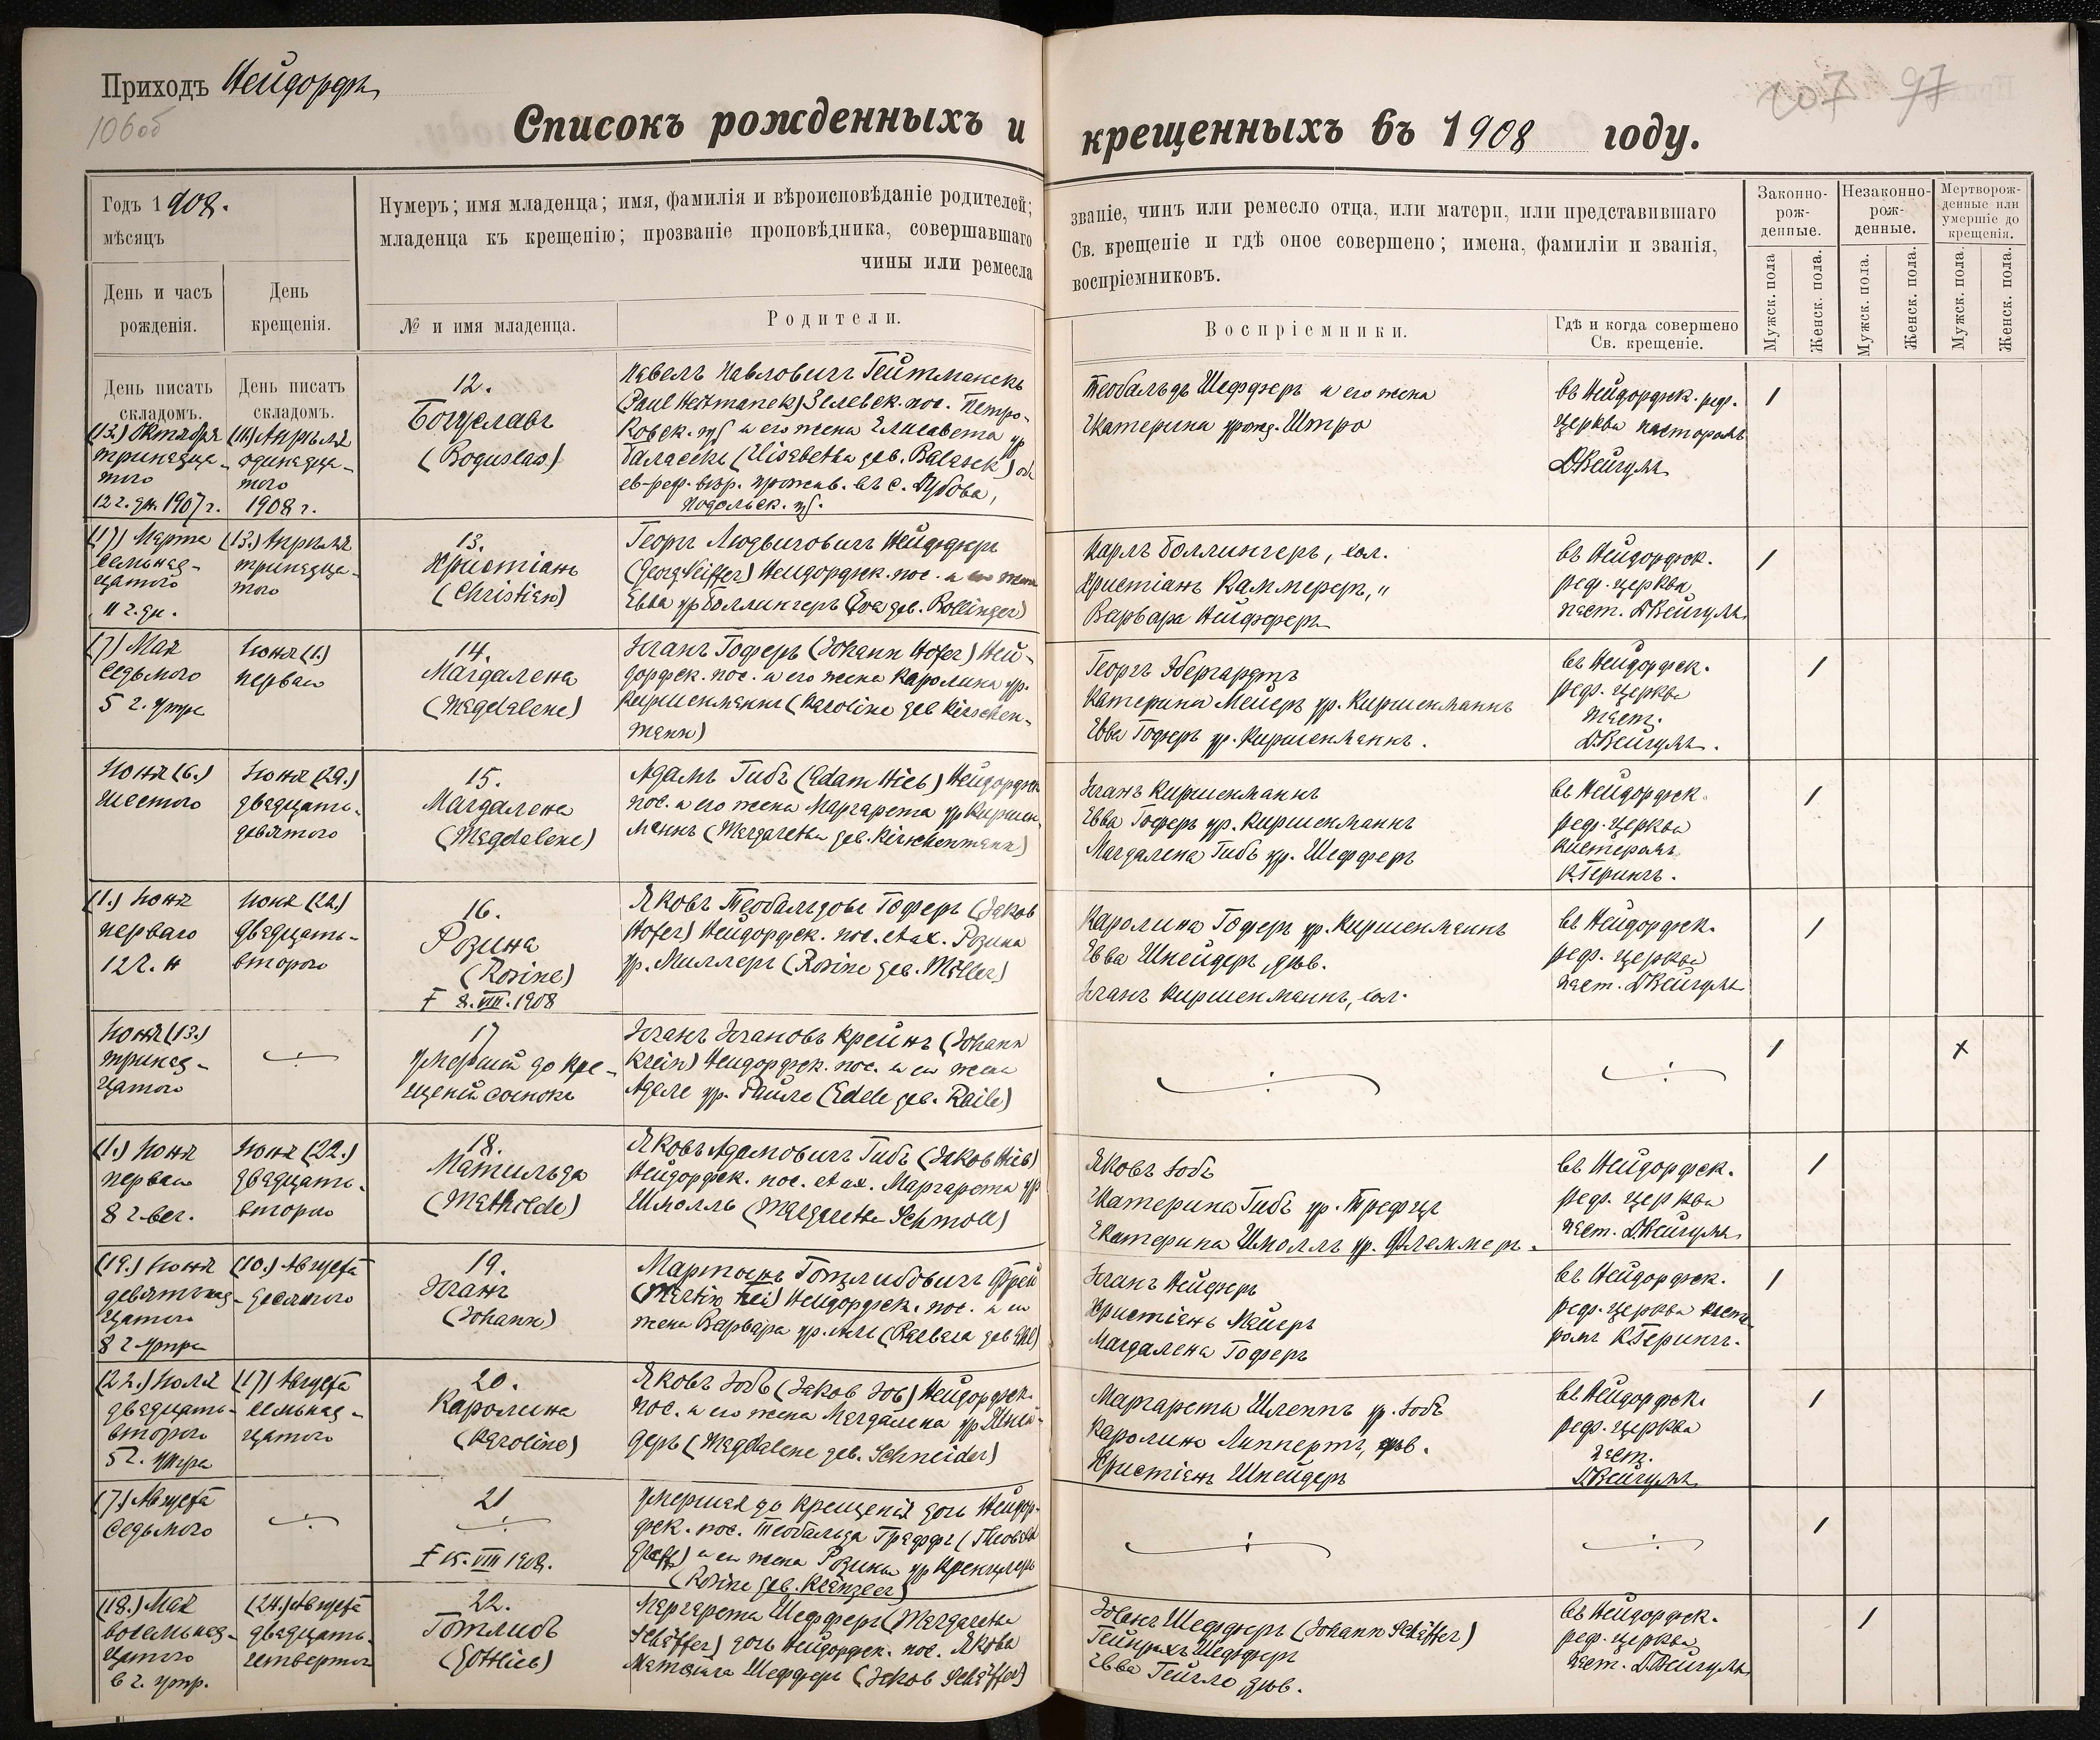 Приходъ Нейдорфъ
106об
107 97
Списокъ рожденныхъ и крещенныхъ въ 1908 году.
Годъ 1908.
мѣсяцъ
День и часъ
рожденія.
День
крещенія.
Нумеръ; имя младенца; имя, фамилія и вѣроисповѣданіе родителей;
младенца къ крещенію; прозваніе проповѣдника, совершавшаго
чины или ремесла
№ и имя младенца.
Родители.
званіе, чинъ или ремесло отца, или матери, или представившаго
Св. крещеніе и гдѣ оное совершено; имена, фамиліи и званія,
воспріемниковъ.
Воспріемники.
Гдѣ и когда совершено
Св. крещеніе.
Законно-
рож-
денные.
Незаконно-
рож-
денные.
Мертворож-
денные или
умершіе до
крещенія.
Мужск. пола
Женск. пола.
Мужск. пола.
Женск. пола.
Мужск. пола.
Женск. пола.
День писать
складомъ.
(13.) Октября
тринадца-
того
12 г. дн. 1907 г.
День писать
складомъ.
(11.) Апрѣля
одинадца-
того
1908 г.
12.
Богуславъ
(Boguslas)
Павелъ Павловичъ Гейтманекъ
(Paul Heitmanek) Зелевск. пос. Петро-
ковск. губ и его жена Елисавета ур
Баласекъ (Elisabetha geb. Balasek) об
ев-реф. вѣр. прожив. въ с. Дубова,
Подольск. губ.
Теобальдъ Шефферъ и его жена
Екатерина урожд. Штро
въ Нейдорфск. реф.
церкви пасторомъ
Д.Вейгумъ
1
(17) Марта
семьнад-
цатого
11 г. дн.
(13.) Апрѣля
тринадца-
того
13.
Христіанъ
(Christian)
Георгъ Людвиговичъ Нейфферъ
(Georg Neiffer) Нейдорфск. пос. и его жена
Евва ур Боллингеръ (Eva geb. Bollinger)
Карлъ Боллингеръ, хол.
Христіанъ Каммереръ, "
Варвара Нейфферъ
въ Нейдорфск.
реф. церкви
паст. Д.Вейгумъ
1
(7) Мая
седьмого
5 г. утра
Іюня (1.)
перваго
14.
Магдалена
(Magdalene)
Іоганъ Гоферъ (Johann Hofer) Ней-
дорфск. пос. и его жена Каролина ур.
Киршенманнъ (Karoline geb Kirschen-
mann)
Георгъ Эбергардтъ
Катерина Мейеръ ур. Киршенманнъ
Евва Гоферъ ур. Киршенманнъ.
въ Нейдорфск.
реф. церкви
паст.
Д.Вейгумъ.
1
Іюня (6.)
шестого
Іюня (29.)
двадцать-
девятого
15.
Магдалена
(Magdalene)
Адамъ Гибъ (Adam Hieb) Нейдорфск
пос. и его жена Маргарета ур Киршен-
маннъ (Margaretha geb. Kirschenmann)
Іоганъ Киршенманнъ
Евва Гоферъ ур. Киршенманнъ
Магдалена Гибъ ур. Шефферъ
въ Нейдорфск.
реф. церкви
кистеромъ
К.Герингъ.
1
(1.) Іюня
перваго
12 г. н
Іюня (22)
двадцать-
второго
16.
Розина
(Rosine)
† 8. VIII. 1908
Яковъ Теобальдовъ Гоферъ (Jakob
Hofer) Нейдорфск. пос. et ux. Розина
ур. Миллеръ (Rosine geb. Müller)
Каролина Гоферъ ур. Киршенманнъ
Евва Шнейдеръ, дѣв.
Іоганъ Киршенманнъ, хол.
въ Нейдорфск.
реф. церкви
паст. Д.Вейгумъ
1
Іюня (13.)
тринад-
цатого
17
умершій до кре-
щенія сынокъ
Іоганъ Іогановъ Крейнъ (Johann
Krein) Нейдорфск. пос. и его жена
Аделе ур. Райле (Edele geb. Raile)
1 x
(1.) Іюня
перваго
8 г. веч.
Іюня (22.)
двадцать-
второго
18.
Матильда
(Mathilde)
Яковъ Адамовичъ Гибъ (Jakob Hieb)
Нейдорфск. пос. et ux. Маргарета ур
Шмолль (Margaretha Schmoll)
Яковъ Іобъ
Екатерина Гибъ ур. Трефцъ
Екатерина Шмолль ур. Флеммеръ.
въ Нейдорфск.
реф. церкви
паст. Д.Вейгумъ
1
(19.) Іюня
девятнад-
цатого
8 г утра
(10.) Августа
десятого
19.
Іоганъ
(Johann)
Мартынъ Готлибовичъ Фрей
(Martin Frei) Нейдорфск. пос. и его
жена Варвара ур. (Barbara geb)
Іоганъ Нейферъ
Христіанъ Мейеръ
Магдалена Гоферъ
въ Нейдорфск.
реф. церкви кисте-
ромъ К.Герингъ.
1
(22.) Іюля
двадцать-
второго
5 г. утра
(17) Августа
семьнад-
цатого
20.
Каролина
(Karoline)
Яковъ Іобъ (Jakob Job) Нейдорфск.
пос. и его жена Магдалена ур Шней-
деръ (Magdalene geb. Schneider)
Маргарета Шлеппъ ур. Іобъ
Каролина Липпертъ, дѣв.
Христіанъ Шнейдеръ
въ Нейдорфск.
реф. церкви
паст.
Д.Вейгумъ
1
(7.) Августа
седьмого
21
† 15. VIII 1908.
умершая до крещенія дочь Нейдор-
фск. пос. Теобальда Граффъ (Theobald
Graff) и его жена Розина ур Кренцлеръ
(Rosine geb. Kränzler)
1
(18.) Мая
восемьнад-
цатого
6 г. утр.
(24.) Августа
двадцать-
четвертого
22.
Готлибъ
(Gottlieb)
Маргарета Шефферъ (Margaretha
Schäffer) дочь Нейдорфск. пос. Якова
Шефферъ (Jakob Schäffer)
Іоганъ Шефферъ (Johann Schäffer)
Гейнрихъ Шефферъ
Евва Гейгле дѣв.
въ Нейдорфск.
реф. церкви
паст. Д.Вейгумъ
1